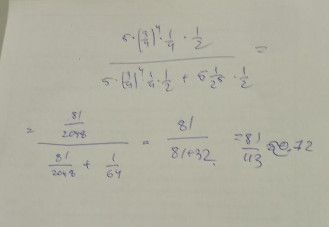 5 · (3/4)^4 · 1/4 · 1/2
=
5 · (3/4)^4 · 1/4 · 1/2 + 5 1/2^5 · 1/2
= 81/2048 / (81/2048 + 1/64) = 81/(81+32) = 81/113 ≈ 0,72